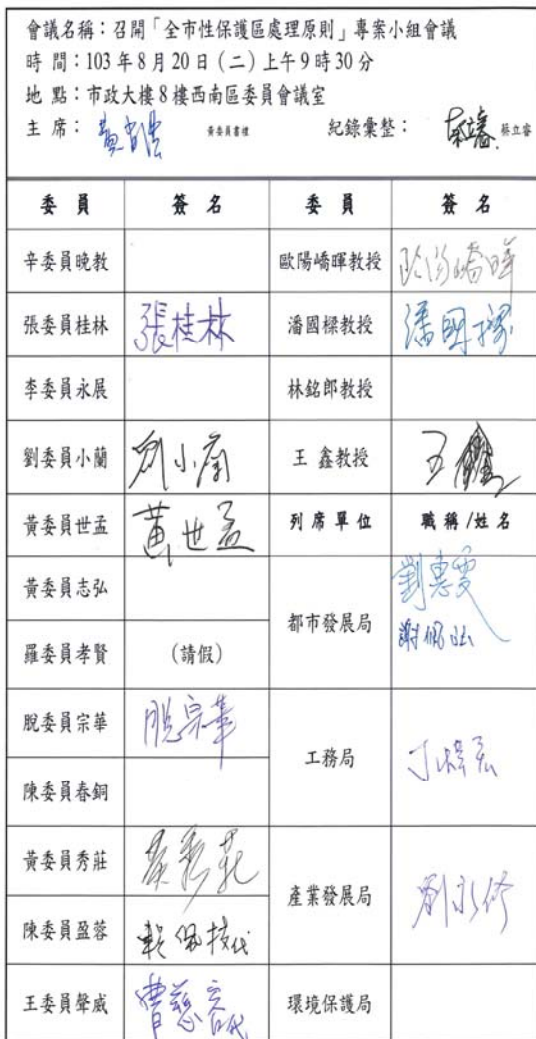 會議名稱：召開「全市性保護區處理原則」專案小組會議
時 間：103年8月20日（二）上午9時30分
地 點：市政大樓8樓西南區委員會議室
主 席： 黃委員書禮 紀錄彙整： 蔡立睿 蔡立睿
委 員 簽 名 委 員 簽 名
辛委員晚教 歐陽嶠暉教授 歐陽嶠暉
張委員桂林 張桂林 潘國樑教授 潘國樑
李委員永展 林銘郎教授
劉委員小蘭 劉小蘭 王 鑫教授 王鑫
黃委員世孟 黃世孟 列席單位 職稱/姓名
黃委員志弘 都市發展局 劉惠雯
羅委員孝賢 (請假) 謝佩砡
脫委員宗華 脫宗華 工務局
陳委員春銅
黃委員秀莊 黃秀莊 產業發展局
陳委員盈蓉
王委員聲威 環境保護局